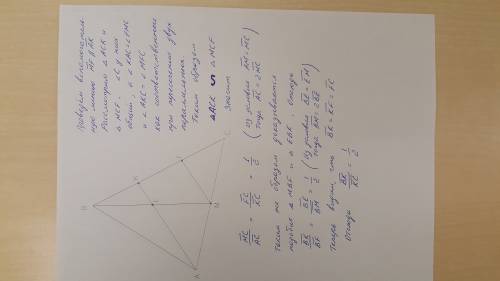 Проведём вспомогатель-
ную линию MF ∥ AK
Рассмотрим △ACK и
△MCF. ∠C у них
общий, а ∠KAC = ∠FMC
и ∠AKC = ∠MFC
как соответственные
при пересечении двух
параллельных.
Таким образом
△ACK ∽ △MCF
Значит
MC/AC = FC/KC = 1/2 (из условия AM = MC, тогда AC = 2MC)
Таким же образом доказывается
подобие △MBF и △EBK. Откуда
BK/BF = BE/BM = 1/2 (из условия BE = EM, тогда BM = 2BE)
Теперь видим, что BK = KF = FC
Откуда BK/KC = 1/2
B
K
E
M
A
C